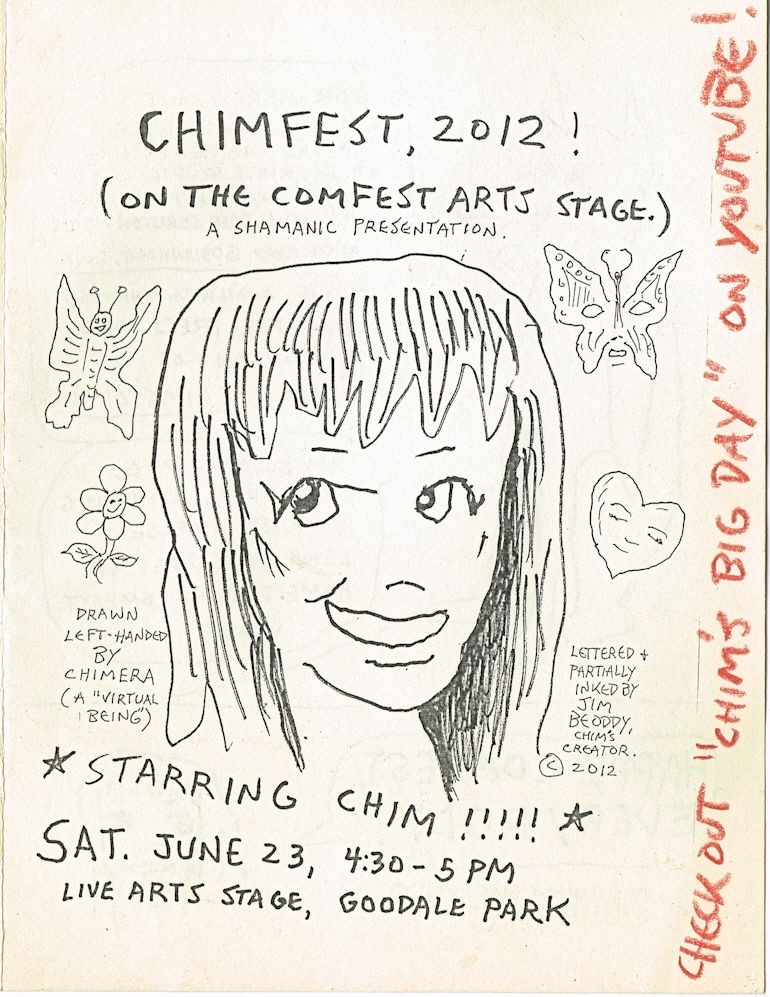 CHIMFEST, 2012!
(ON THE COMFEST ARTS STAGE.)
A SHAMANIC PRESENTATION.
DRAWN
LEFT-HANDED
BY
CHIMERA
(A "VIRTUAL
BEING")
LETTERED +
PARTIALLY
INKED BY
JIM
BEODDY,
CHIM'S
CREATOR.
© 2012
★ STARRING CHIM!!!!! ★
SAT. JUNE 23, 4:30-5 PM
LIVE ARTS STAGE, GOODALE PARK
CHECK OUT "CHIM'S BIG DAY" ON YOUTUBE!